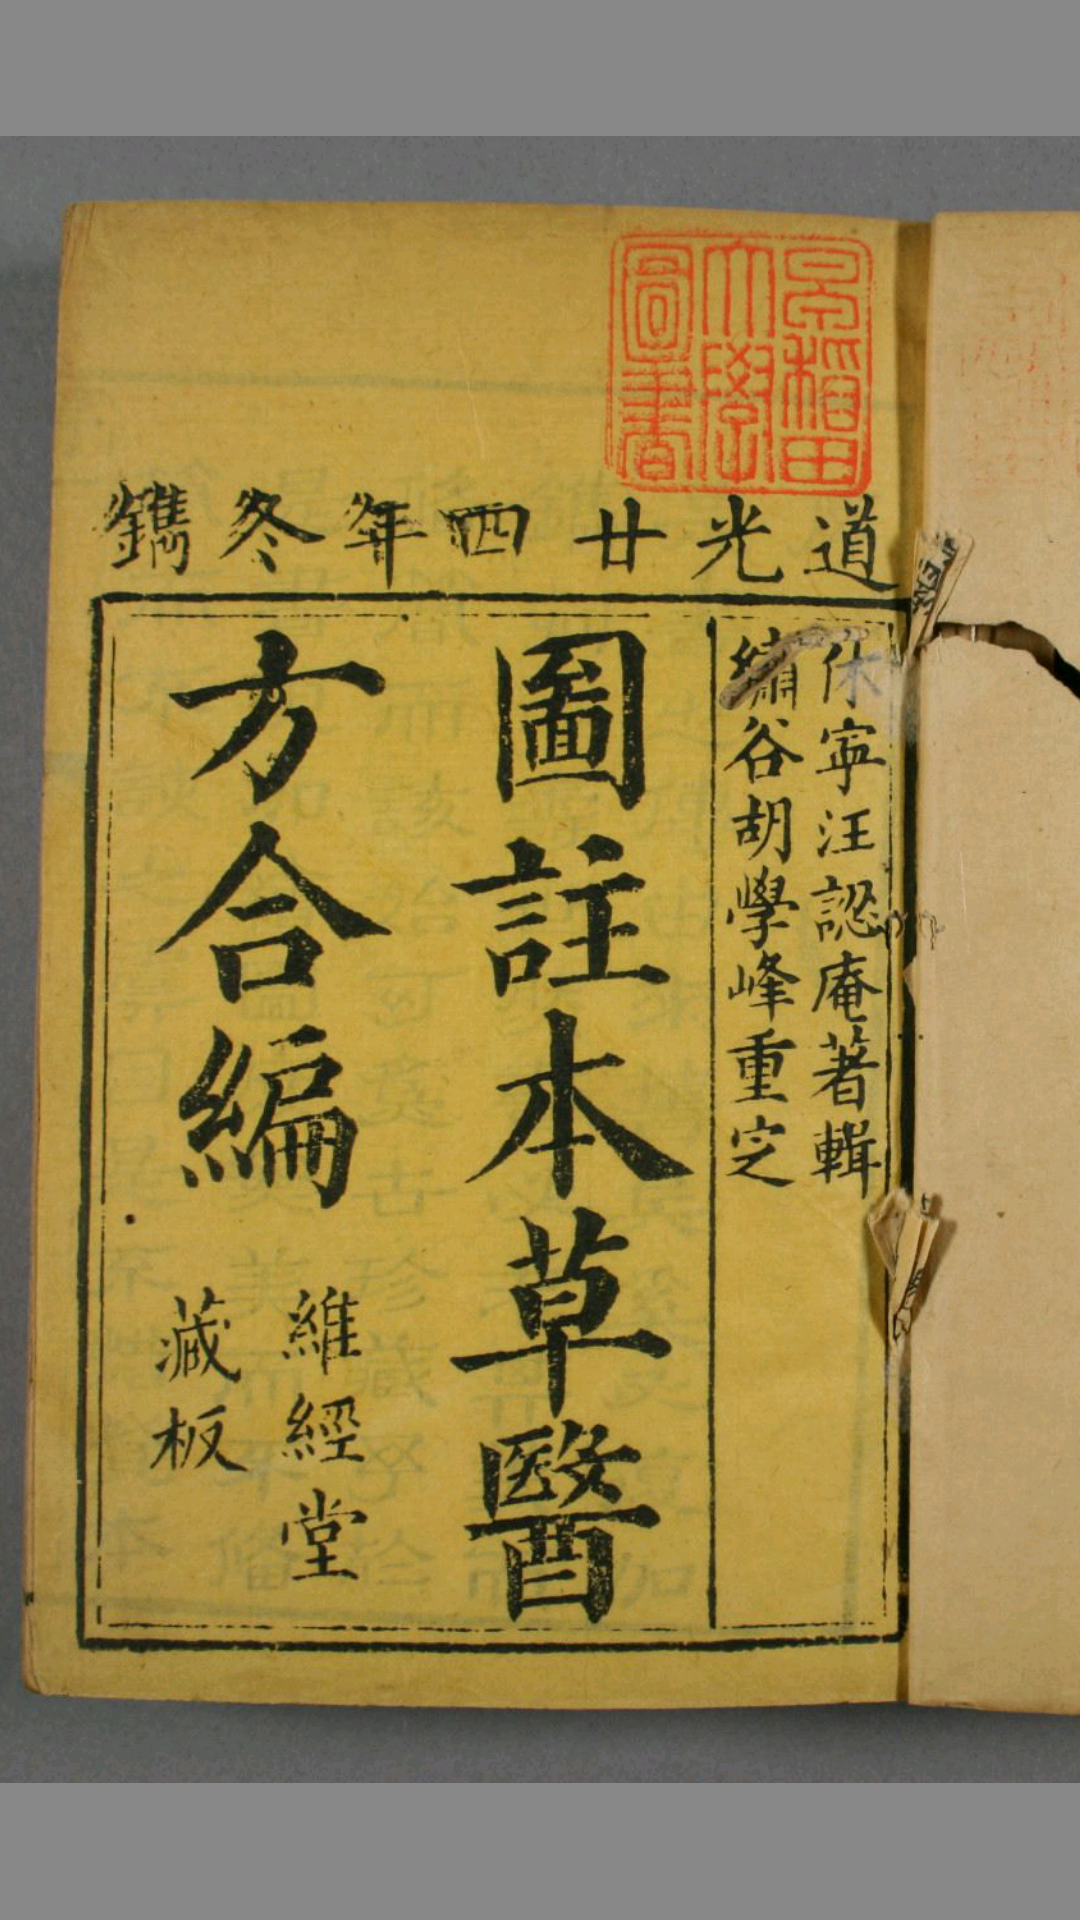 道光廿四年冬鐫
休寧汪訒庵著輯
繡谷胡學峰重定
圖註本草醫
方合編
維經堂
藏板
早稻田
大學
圖書